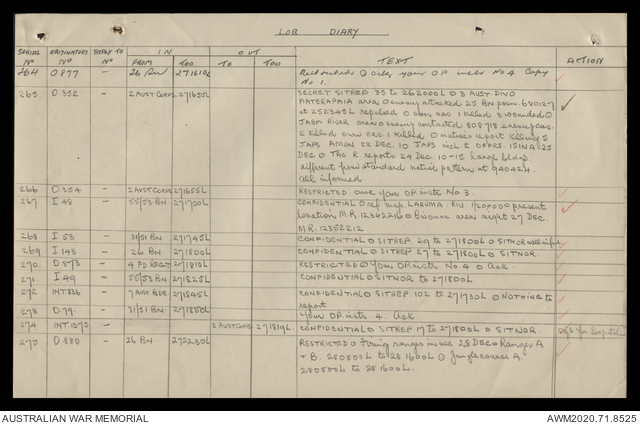 LOG DIARY
SERIAL No ORIGINATORS No REPLY TO No IN OUT TEXT ACTION
FROM TOO TO TOO
264 O 877 - 26 BN 271610L Restricted O your OP instr No 4 Copy
No 1.
265 O 352 - 2 AUST CORPS 271655L SECRET SITREP 35 to 262000L O 3 AUST DIV O
PIATERAPAIA area O enemy attacked 25 BN posn 680127
at 252345L repulsed O own cas 1 killed 3 wounded O
JABA RIVER area O enemy contacted 808718 enemy cas.
2 killed own cas. 1 killed O natives report killing 5
JAPS AMUN 22 DEC. 10 JAPS incl 2 OFFRS. ISINA 25
DEC O TAC R. reports 24 Dec 10-15 large bldgs
different from standard native pattern at 9A0424.
all informed
266 O 354 - 2 AUST CORPS 271655L RESTRICTED. your OP instr No 3.
267 I 48 - 55/53 BN 271700L CONFIDENTIAL O ref map LARUMA. RIV. 1/20000 present
location M.R 12342216 O Bivouac area night 27 Dec.
M.R. 12352212
268 I 53 - 31/51 BN 271745L CONFIDENTIAL O SITREP 29 to 271800L O SITNOR
269 I 143 - 26 BN 271800L CONFIDENTIAL O SITREP 27 to 271800L O SITNOR.
270. O 873 - 4 FD REGT 271810L RESTRICTED O Your OP. instr No. 4 O Ack.
271 I 49 - 55/53 BN 271825L CONFIDENTIAL O SITNOR to 271800L
272 INT 836 - 7 AUST BDE 271845L CONFIDENTIAL O SITREP 102 to 271730L O NOTHING to
report
273 O 79 - 31/51 BN 271850L Your OP. instr 4. Ack.
274 INT 1275 - 2 AUST CORPS 271819L CONFIDENTIAL O SITREP 17 to 271800L O SITNOR
275 O 880 - 26 BN 272230L RESTRICTED O Firing ranges in use 28 DEC O Ranges A
+ B. 280800L to 281600L O Jungle course A.
280800L to 281600L.
AUSTRALIAN WAR MEMORIAL AWM2020.71.8525